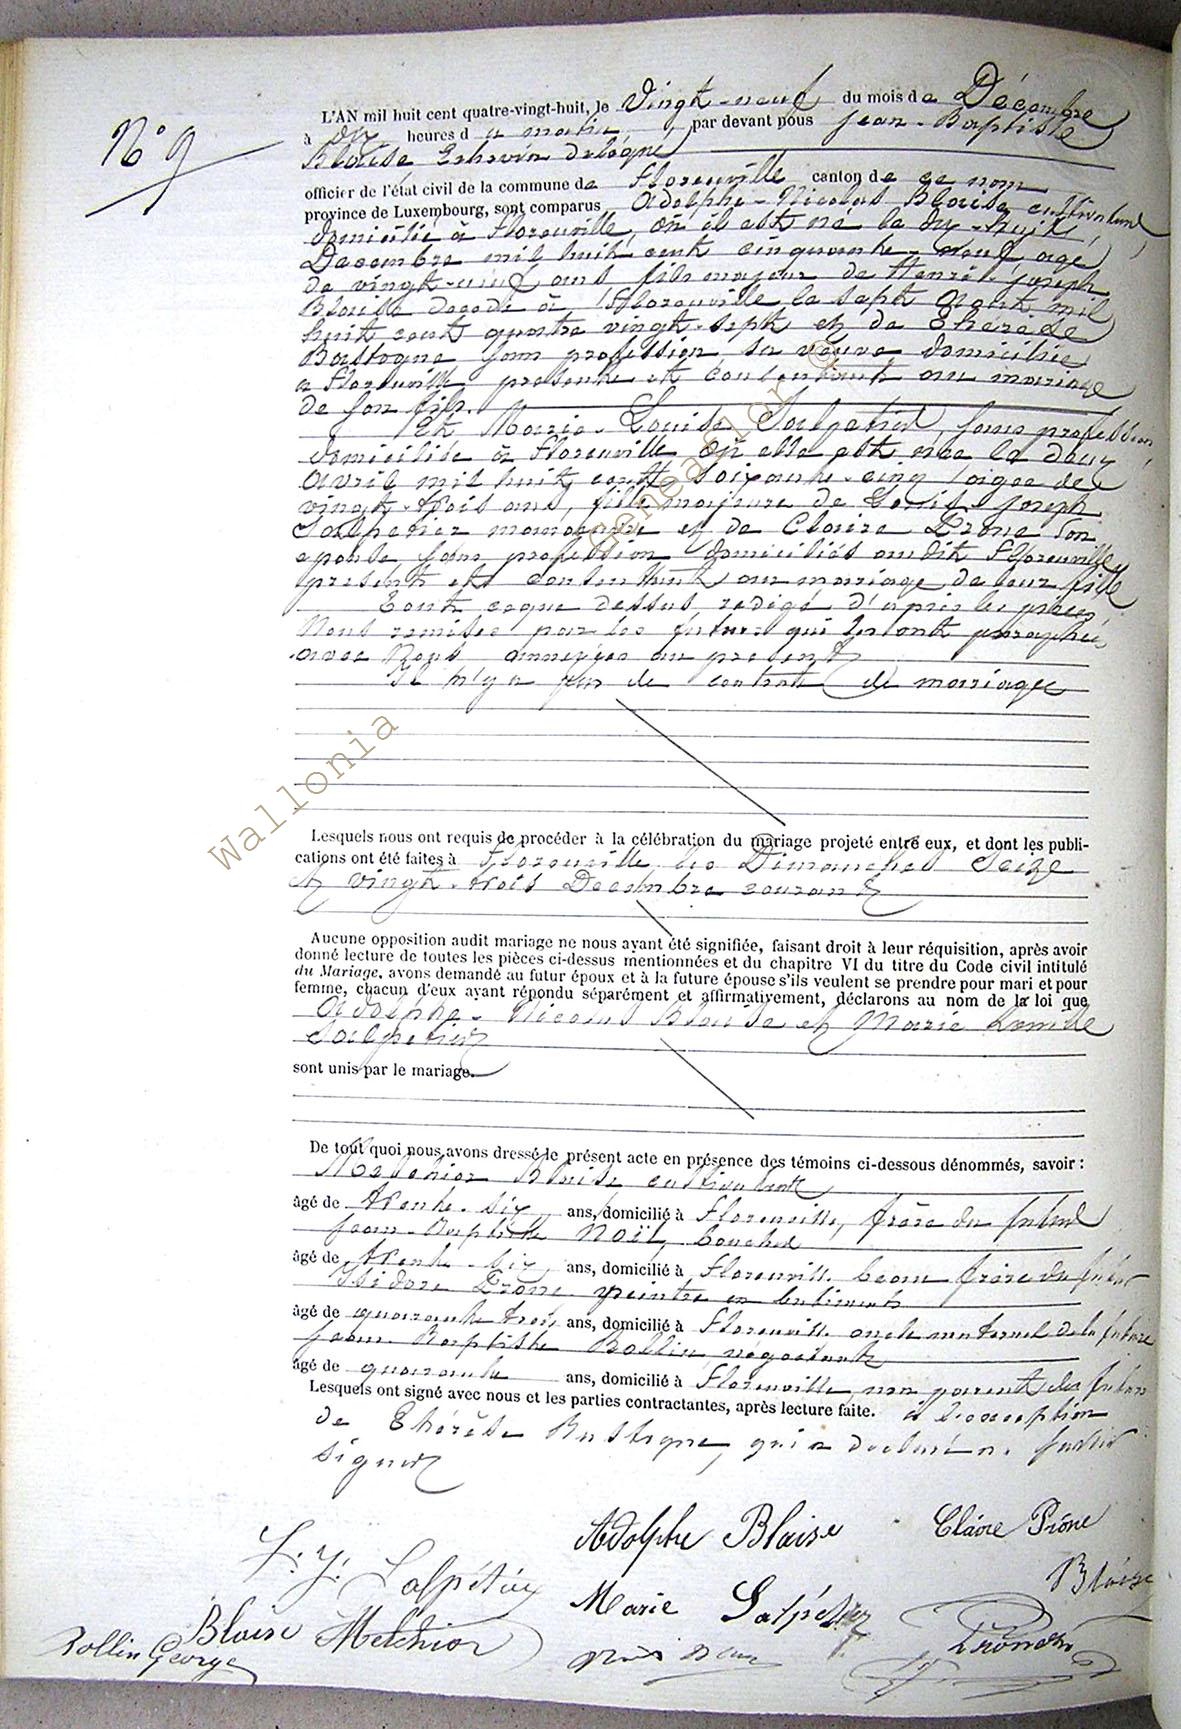 N° 9
L'AN mil huit cent quatre-vingt-huit, le Vingt-neuf du mois de Décembre
à dix heures du matin, par devant nous Jean-Baptiste
Blaise Echevin délégué
officier de l'état civil de la commune de Florenville canton de ce nom
province de Luxembourg, sont comparus Adolphe-Nicolas Blaise cultivateur
domicilié à Florenville, où il est né le dix-huit
Decembre mil huit cent cinquante-neuf agé
de vingt-neuf ans fils majeur de Henri-Joseph
Blaise décédé à Florenville le sept Août mil
huit cent quatre vingt-sept et de Thérèse
Bastogne sans profession, sa veuve domiciliée
a Florenville, presente et consentant au mariage
de son fils.
Et Marie-Louise Salpetier, sans profession
domiciliée à Florenville où elle est née le deux
Avril mil huit cent soixante-cinq agée de
vingt-trois ans, fille majeure de Louis-Joseph
Salpetier manoeuvre et de Claire Prône son
epouse, sans profession domiciliés audit Florenville
presents et consentant au mariage de leur fille
Tout ceque dessus redigé d'après les pièces
Nous remises par les futurs qui les ont paraphées
avec Nous annexées au present
Il n'y a pas de contrat de mariage
Lesquels nous ont requis de procéder à la célébration du mariage projeté entre eux, et dont les publi-
cations ont été faites à Florenville les Dimanches Seize
et vingt-trois Decembre courant
Aucune opposition audit mariage ne nous ayant été signifiée, faisant droit à leur réquisition, après avoir
donné lecture de toutes les pièces ci-dessus mentionnées et du chapitre VI du titre du Code civil intitulé
du Mariage, avons demandé au futur époux et à la future épouse s'ils veulent se prendre pour mari et pour
femme, chacun d'eux ayant répondu séparément et affirmativement, déclarons au nom de la loi que
Adolphe-Nicolas Blaise et Marie Louise
Salpetier
sont unis par le mariage.
De tout quoi nous avons dressé le présent acte en présence des témoins ci-dessous dénommés, savoir :
Melchior Blaise cultivateur
âgé de trente-six ans, domicilié à Florenville, frère du futur
Jean-Baptiste Noël, boucher
âgé de trente-six, ans, domicilié à Florenville beau frère du futur
Isidore Prône peintre en batiments
âgé de quarante trois ans, domicilié à Florenville oncle maternel de la future
Jean Baptiste Rollin négociant
âgé de quarante ans, domicilié à Florenville, non parent des futurs
Lesquels ont signé avec nous et les parties contractantes, après lecture faite. à l'exception
de Thérèse Bastogne, qui a declaré ne savoir
signer
Adolphe Blaise Claire Prône
L. J. Salpétier Blaise
Marie Salpétier
Blaise Melchior
Rollin George
Wallonia
GeneaFlor ©